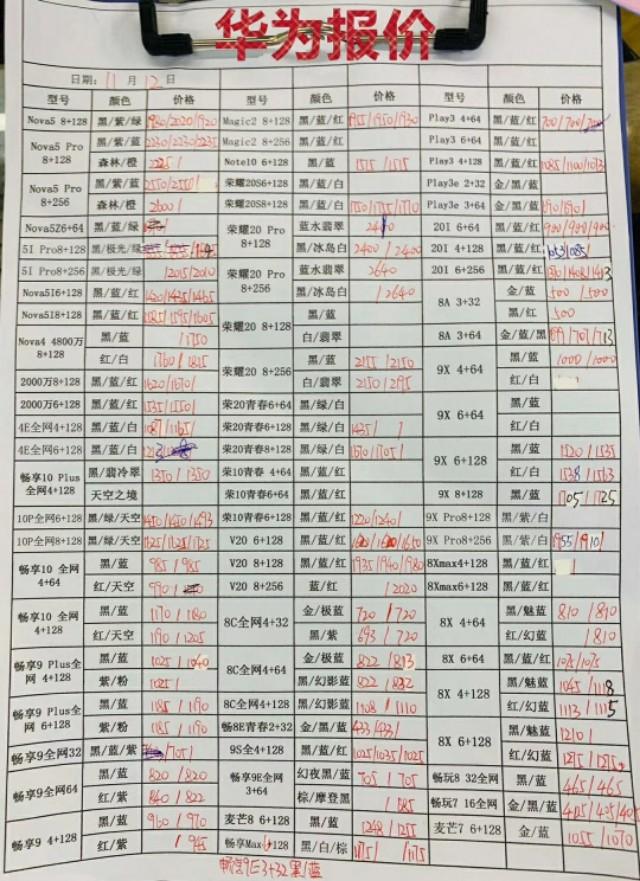 华为报价
日期: 11 月 12 日
型号 颜色 价格 型号 颜色 价格 型号 颜色 价格
Nova5 8+128 黑/紫/绿 1980/2020/1920 Magic2 6+128 黑/蓝/红 1955/1950/1930 Play3 4+64 黑/蓝/红 700/700/
Nova5 Pro 8+128 黑/紫/蓝 2230/2230/2235 Magic2 8+256 黑/蓝/红 Play3 6+64 黑/蓝/红
森林/橙 2225/ Note10 6+128 黑/蓝 1515/1515 Play3 4+128 黑/蓝/红 1085/1100/1073
Nova5 Pro 8+256 黑/紫/蓝 2550/2550/ 荣耀20S6+128 黑/蓝/白 Play3e 2+32 金/黑/蓝
森林/橙 2600/ 荣耀20S8+128 黑/蓝/白 1750/1755/1770 Play3e 3+64 金/黑/蓝 690/690/
Nova5Z6+64 黑/蓝/绿 荣耀20 Pro 8+128 蓝水翡翠 20I 6+64 黑/蓝/红 900/900/900
5I Pro8+128 黑/极光/绿 黑/冰岛白 2400/2400 20I 4+128 黑/蓝/红
5I Pro8+256 黑/极光/绿 /2015/2010 荣耀20 Pro 8+256 蓝水翡翠 2640 20I 6+256 黑/蓝/红
Nova5I6+128 黑/蓝/红 1420/1435/1465 黑/冰岛白 /2640 8A 3+32 金/蓝 500/500
Nova5I8+128 黑/蓝/红 1585/1595/1605 荣耀20 8+128 黑/蓝 黑/红 500
Nova4 4800万 8+128 黑/蓝 /1750 白/翡翠 8A 3+64 金/蓝/黑
红/白 1760/1815 荣耀20 8+256 黑/蓝 2155/2150 9X 4+64 黑/蓝 1000/1000
2000万8+128 黑/蓝/红 1620/1670/ 白/翡翠 2150/2195 红/白
2000万6+128 黑/蓝/红 1535/1550/ 荣20青春6+64 黑/绿/白 9X 6+64 黑/蓝
4E全网4+128 黑/蓝/白 1087/1165/ 荣20青春6+128 黑/绿/白 1435/ / 红/白
4E全网6+128 黑/蓝/白 荣20青春8+128 黑/绿/白 1670/1705/ 9X 6+128 黑/蓝 1520/1535
畅享10 Plus 全网4+128 黑/翡冷翠 1350/1350 荣10青春 4+64 黑/蓝/红 红/白 1538/1563
天空之境 荣10青春6+64 黑/蓝/红 9X 8+128 黑/蓝 1705/1725
10P全网6+128 黑/绿/天空 1450/1450/1493 荣10青春6+128 黑/蓝/红 1220/1240/ 9X Pro8+128 黑/紫/白
10P全网8+128 黑/绿/天空 V20 6+128 黑/蓝/红 9X Pro8+256 黑/紫/白 1955/1910/
畅享10 全网 4+64 黑/蓝 985/985 V20 8+128 黑/蓝/红 1935/1940/1980 8Xmax4+128 黑/蓝/红
红/天空 990/ V20 8+256 蓝/红 /2020 8Xmax6+128 黑/蓝/红
畅享10 全网 4+128 黑/蓝 1170/1180 8C全网4+32 金/极蓝 720/720 8X 4+64 黑/魅蓝 810/890
红/天空 1190/1205 黑/紫 693/720 红/幻蓝 /810
畅享9 Plus全网 4+128 黑/蓝 1025/1040 8C全网4+64 金/极蓝 822/813 8X 6+64 黑/蓝/红 1075/1075
紫/粉 1025/ 黑/幻影蓝 822/832 8X 4+128 黑/魅蓝 1045/1118
畅享9 Plus全网 6+128 黑/蓝 1185/1190 8C全网4+128 黑/幻影蓝 1108/1110 红/幻蓝 1113/1115
紫/粉 1185/1190 畅8E青春2+32 金/黑/蓝 433/433/ 8X 6+128 黑/魅蓝 1210/
畅享9全网32 黑/蓝/紫 /705/ 9S全4+128 黑/蓝/红 1025/1035/1025 红/幻蓝 1275/1275
畅享9全网64 黑/蓝 820/820 畅享9E全网 3+64 幻夜/黑蓝 705/705 畅玩8 32全网 黑/蓝 465/465
红/紫 840/822 棕/摩登黑 /685 畅玩7 16全网 金/黑/蓝
畅享9 4+128 黑/蓝 960/970 麦芒8 6+128 黑/蓝 1248/1255 麦芒7 6+128 金/蓝 1055/1070
红/紫 /945 畅享Max 黑/白/棕 1175/ /1175
畅享9E3+32黑/蓝